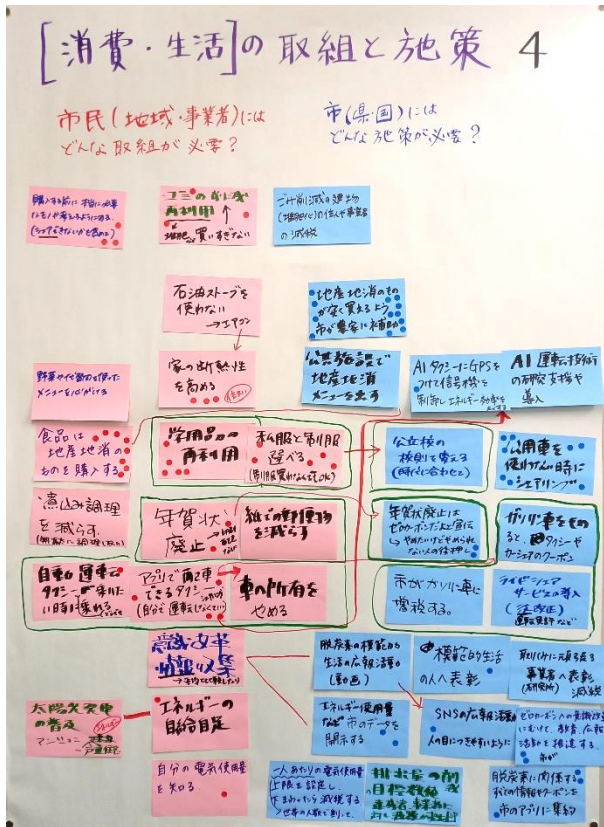 [消費・生活]の取組と施策 4
市民(地域・事業者)には
どんな取組が必要?
市(県・国)には
どんな施策が必要?
購入する前に本当に必要
ゴミの削減
再利用
買いすぎない
ごみ削減の建物
の住人や事業者
の減税
石油ストーブを
使わない
→エアコン
地産地消のもの
が安く買えるよう
市が農家に補助
家の断熱性
を高める
公共施設で
地産地消
メニューを出す
AIタクシーにGPSを
つけて信号機を
制御しエネルギー効率を
AI運転技術
の研究支援や
導入
メニューを心がける
食品は
地産地消の
ものを購入する
学用品の
再利用
私服と制服
選べる
(制服買わなくてもOK)
公立校の
校則を変える
(時代に合わせて)
公用車を
使わない時に
シェアリング
煮込み調理
を減らす
年賀状
廃止
紙での郵便物
を減らす
年賀状廃止は
ゼロカーボンだと宣伝
やめたいけどやめられ
ない人の後押し
ガソリン車をやめ
ると、タクシーや
カーシェアのクーポン
自動運転
タクシーが来て
い時に乗れる
アプリで配車
できるタクシー
(自分で運転しなくていい)
車の所有を
やめる
市がガソリン車に
増税する。
ライドシェア
サービスの導入
(法改正)
運転免許など
意識改革
情報収集
脱炭素の模範的
生活の広報活動
(動画)
模範的生活
の人へ表彰
取りくみに頑張る
事業者へ表彰
(研究所) 減税
太陽光発電
の普及
マンション
一戸建住宅
エネルギーの
自給自足
エネルギー使用量
など市のデータを
開示する
SNSの広報活動
人の目につきやすいように
ゼロカーボンへの意識改革
にむけて、教育、広報
活動を推進する。
市が
自分の電気使用量
を知る。
一人あたりの電気使用量
上限を設定し、
下まわったら減税する
世帯の人数で割って、
排出量の削減
目標数値
脱炭素に関係する
すべての情報やクーポンを
市のアプリに集約